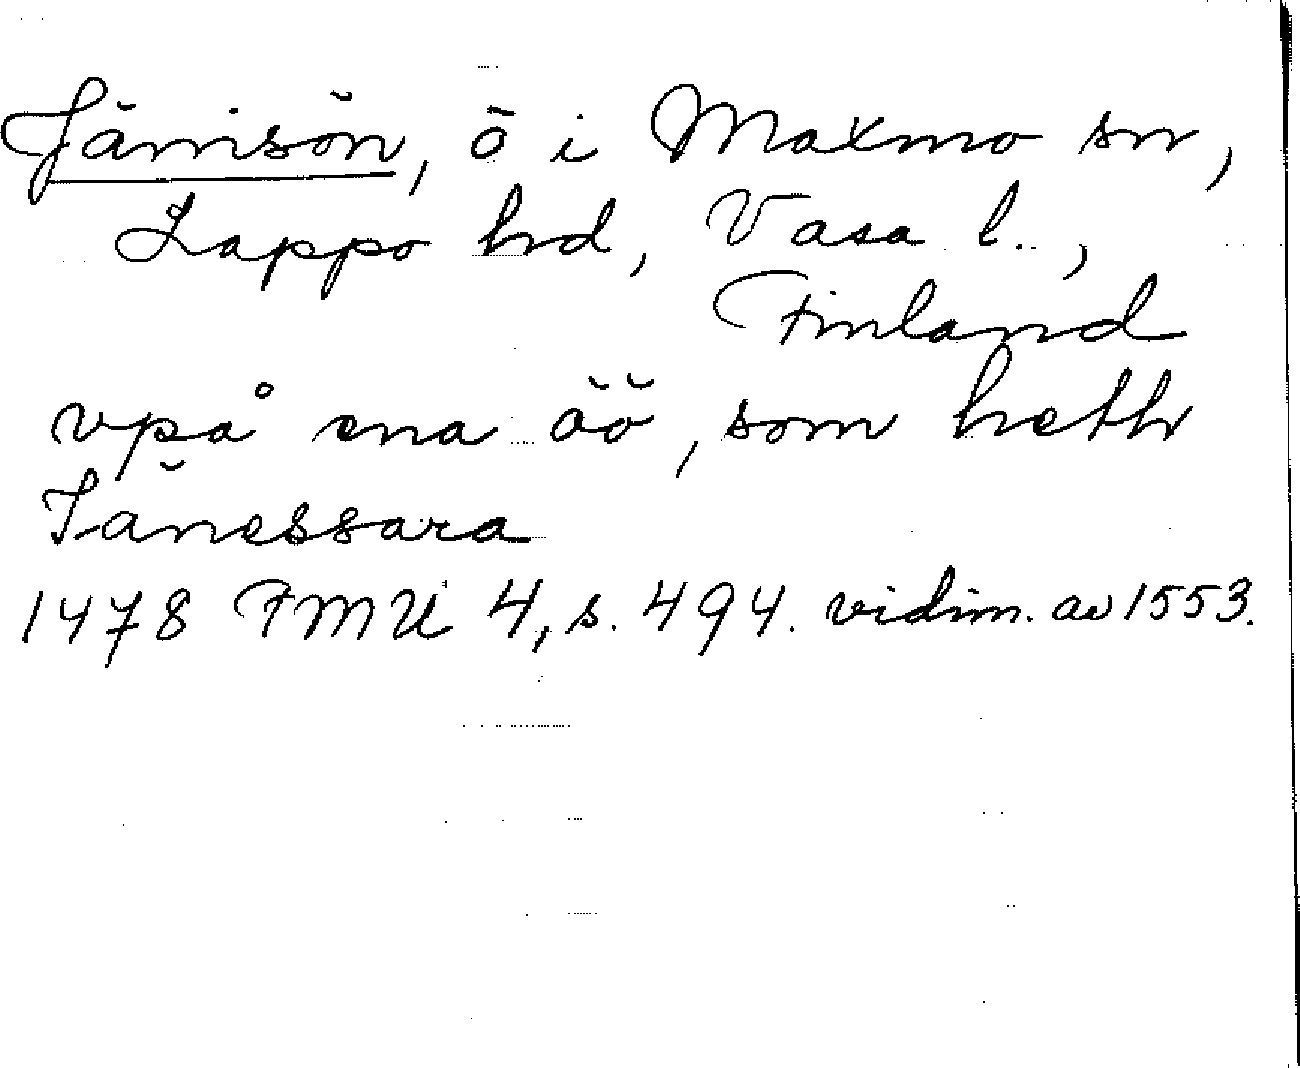 Jämisön, ö i Maxmo sn,
Lappo hd, Vasa l.,
Finland
vpå ena äö, som heth
Jänessara
1478 FMU 4, s. 494. vidim. av 1553.